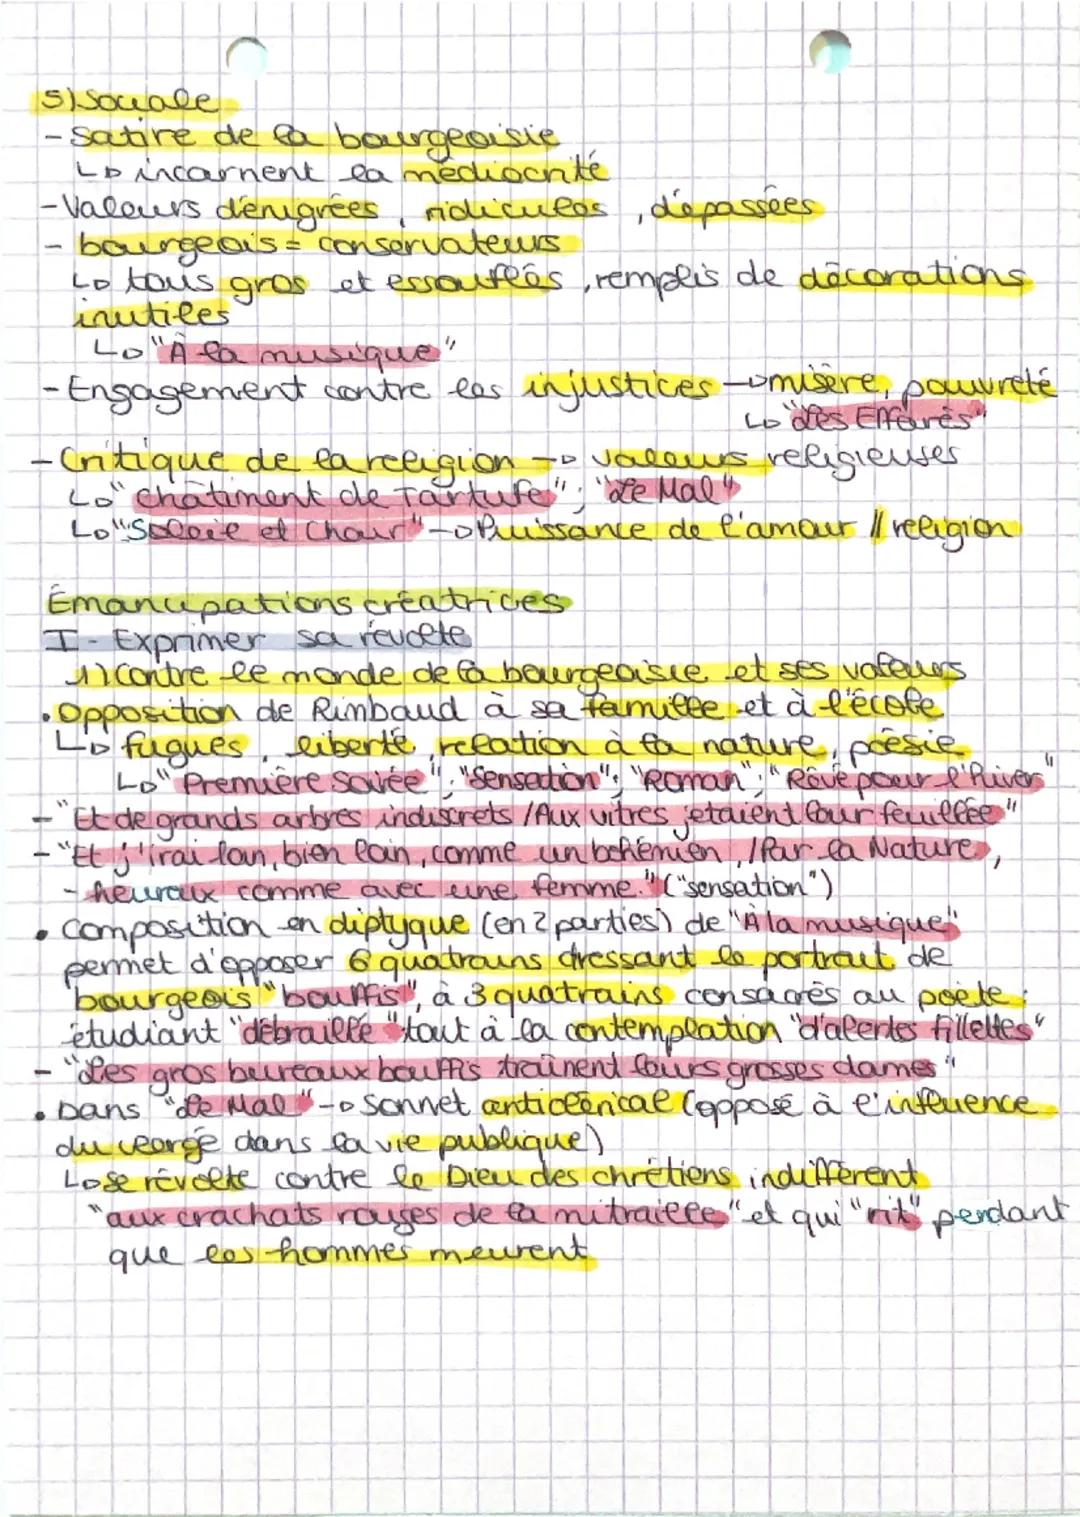 5) Sociale
- Satire de la bourgeoisie
↳ incarnent la médiocrité
- Valeurs dénigrées, ridicules, dépassées
- bourgeois = conservateurs
↳ tous gros et essouflés, remplis de décorations
inutiles
↳ "À la musique"
- Engagement contre les injustices → misère, pauvreté
↳ "Les Effarés"
- Critique de la religion → valeurs religieuses
↳ "Châtiment de Tartufe"; "Le Mal"
↳ "Soleil et Chair" → Puissance de l'amour // religion
Émancipations créatrices
I - Exprimer sa révolte
1) Contre le monde de la bourgeoisie et ses valeurs
• Opposition de Rimbaud à sa famille et à l'école
↳ fugues, liberté, relation à la nature, poésie
↳ "Première Soirée"; "Sensation"; "Roman"; "Rêvé pour l'hiver"
- "Et de grands arbres indiscrets / Aux vitres jetaient leur feuillée"
- "Et j'irai loin, bien loin, comme un bohémien, / Par la Nature,
- heureux comme avec une femme." ("sensation")
• Composition en diptyque (en 2 parties) de "À la musique"
permet d'opposer 6 quatrains dressant le portrait de
bourgeois "bouffis", à 3 quatrains consacrés au poète :
étudiant "débraillé" tout à la contemplation "d'alertes fillettes"
- "Les gros bureaux bouffis traînent leurs grosses dames"
• Dans "Le Mal" → Sonnet anticlérical (opposé à l'influence
du clergé dans la vie publique)
↳ se révolte contre le Dieu des chrétiens indifférent
"aux crachats rouges de la mitraille" et qui "rit" pendant
que les hommes meurent